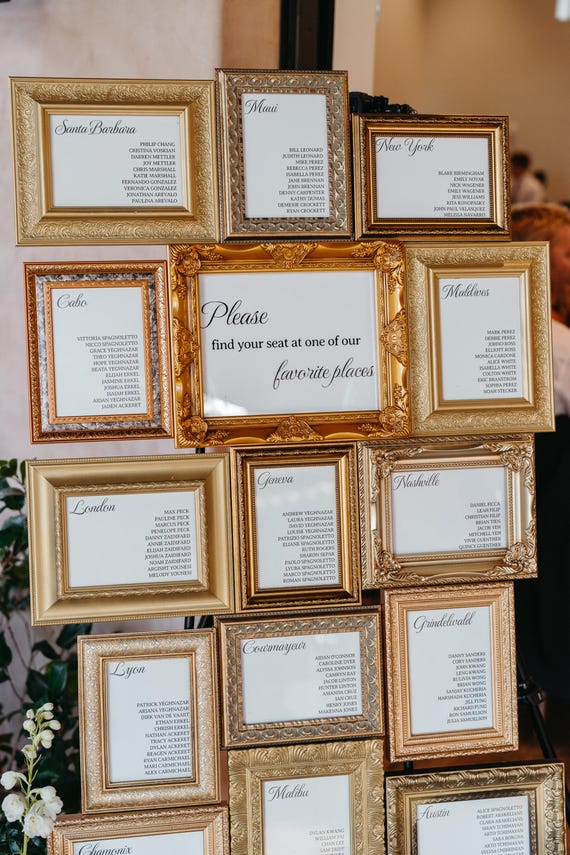 Santa Barbara
PHILIP CHANG
CRISTINA VOSKIAN
DARREN METTLER
JOY METTLER
CHRIS MARSHALL
KATIE MARSHALL
FERNANDO GONZALEZ
VERONICA GONZALEZ
JONATHAN AREVALO
PAULINA AREVALO
Maui
BILL LEONARD
JUDITH LEONARD
MIKE PEREZ
REBECCA PEREZ
ISABELLA PEREZ
JANE BRENNAN
JOHN BRENNAN
DENNY CARPENTER
KATHY DUMAS
DEMERIE CROCKETT
RYAN CROCKETT
New York
BLAKE BIRMINGHAM
EMILY NOVAK
NICK WAGENER
EMILY WAGENER
JESS WILLIAMS
RITA RUNOFSKY
JOHN PAUL VELASQUEZ
MELISSA NAVARRO
Cabo
VITTORIA SPAGNOLETTO
NICCO SPAGNOLETTO
GRACE YEGHNAZAR
THEO YEGHNAZAR
HOPE YEGHNAZAR
BEATA YEGHNAZAR
ELIJAH ERNEL
JASMINE ERNEL
JOSHUA ERNEL
ISAIAH ERNEL
AIDAN YEGHNAZAR
JADEN ACKERET
Please
find your seat at one of our
favorite places
Maldives
MARK PEREZ
DEBBIE PEREZ
JOHNO ROSS
ELLIOTT ROSS
MONICA CARDONE
ALICE WHITE
ISABELLA WHITE
COLTON WHITE
ERIC BRANSTROM
SOPHIA PEREZ
NOAH STECKER
London
MAX PECK
PAULINE PECK
MARCUS PECK
PENELOPE PECK
DANNY ZADIFARD
ANNIE ZADIFARD
ELIJAH ZADIFARD
JOSHUA ZADIFARD
ARGISHT YOUNESI
MELODY YOUNESI
Geneva
ANDREW YEGHNAZAR
LAURA YEGHNAZAR
DAVID YEGHNAZAR
LOUISE YEGHNAZAR
PATRIZIO SPAGNOLETTO
ELIANE SPAGNOLETTO
RUTH ROGERS
SHARON SEPAR
PAOLO SPAGNOLETTO
LYDIA SPAGNOLETTO
MARCO SPAGNOLETTO
ROMAN SPAGNOLETTO
Nashville
DANIEL FICCA
LEAH FILIP
CHRISTIAN FILIP
BRIAN TIEN
JACOB YEH
MITCHELL YEH
VIVIE GUENTHER
QUINCY GUENTHER
Lyon
PATRICK YEGHNAZAR
ARIANA YEGHNAZAR
DIRK VAN DE VAART
ETHAN ERKEL
CHRISTI ERKEL
NATHAN ACKERET
TRACY ACKERET
DYLAN ACKERET
REAGEN ACKERET
RYAN CARMICHAEL
MARI CARMICHAEL
ALEX CARMICHAEL
Courmayeur
AIDAN O'CONNOR
CAROLINE DYER
ALYSSA JOHNSON
CAMRYN RAY
JACOB LINTON
HUNTER LINTON
AMANDA CRUZ
IAN CRUZ
HENRY JONES
MAKENNA JONES
Grindelwald
DANNY SANDERS
CORY SANDERS
JOHN KWANG
LENG KWANG
RULIVIA WONG
BRIAN WONG
SANJAY KUCHERIA
HARSHADA KUCHERIA
JILL FUNG
RICHARD FUNG
RON SAMUELSON
JULIA SAMUELSON
Malibu
DYLAN KWANG
IAN CHARLES
Austin
ALICE SPANTON
ROBERT ARAKELIAN
CLARA ARAKELIAN
Chamonix